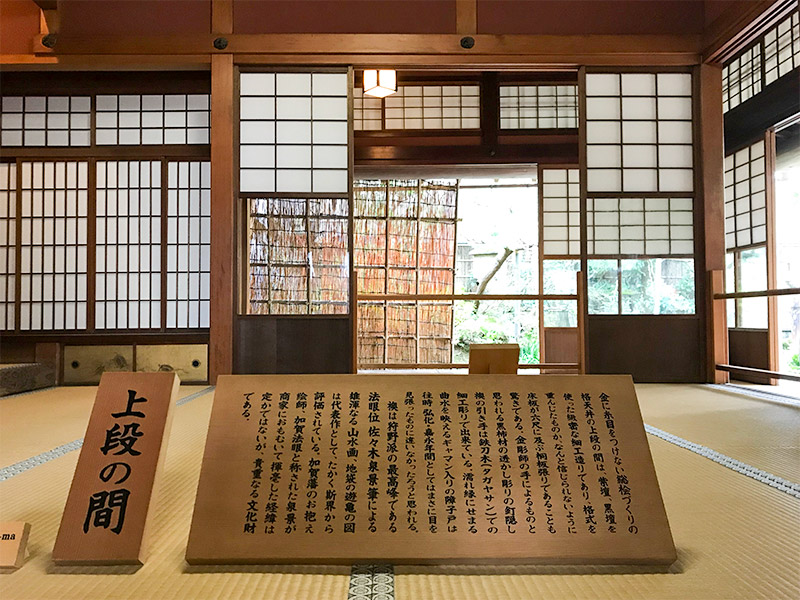 上段の間
金に糸目をつけない総桧づくりの
格天井の上段の間は、紫壇、黒壇を
使った緻密な細工造りであり、格式を
重んじたものか、なんと信じられないように
床板が六尺に及ぶ桐板張りであることも
驚きである。金彫師の手によるものと
思われる黒柿材の透かし彫りの釘隠し
襖の引き手は鉄刀木(タガヤサン)での
細工彫りで出来ている。濡れ縁にせまる
曲水を映えるギヤマン入りの障子戸は
往時弘化・嘉永年間としてはまさに目を
見張ったものに違いなかったろうと思われる。
襖は狩野派の最高峰である
法眼位、佐々木泉景筆による
雄渾なる山水画・地袋の遊亀の図
は代表作として、たかく斯界から
評価されている。加賀藩のお抱え
絵師、加賀法眼と称された泉景が
商家におもむいて揮毫した経緯は
定かではないが、貴重なる文化財
である。
-ma